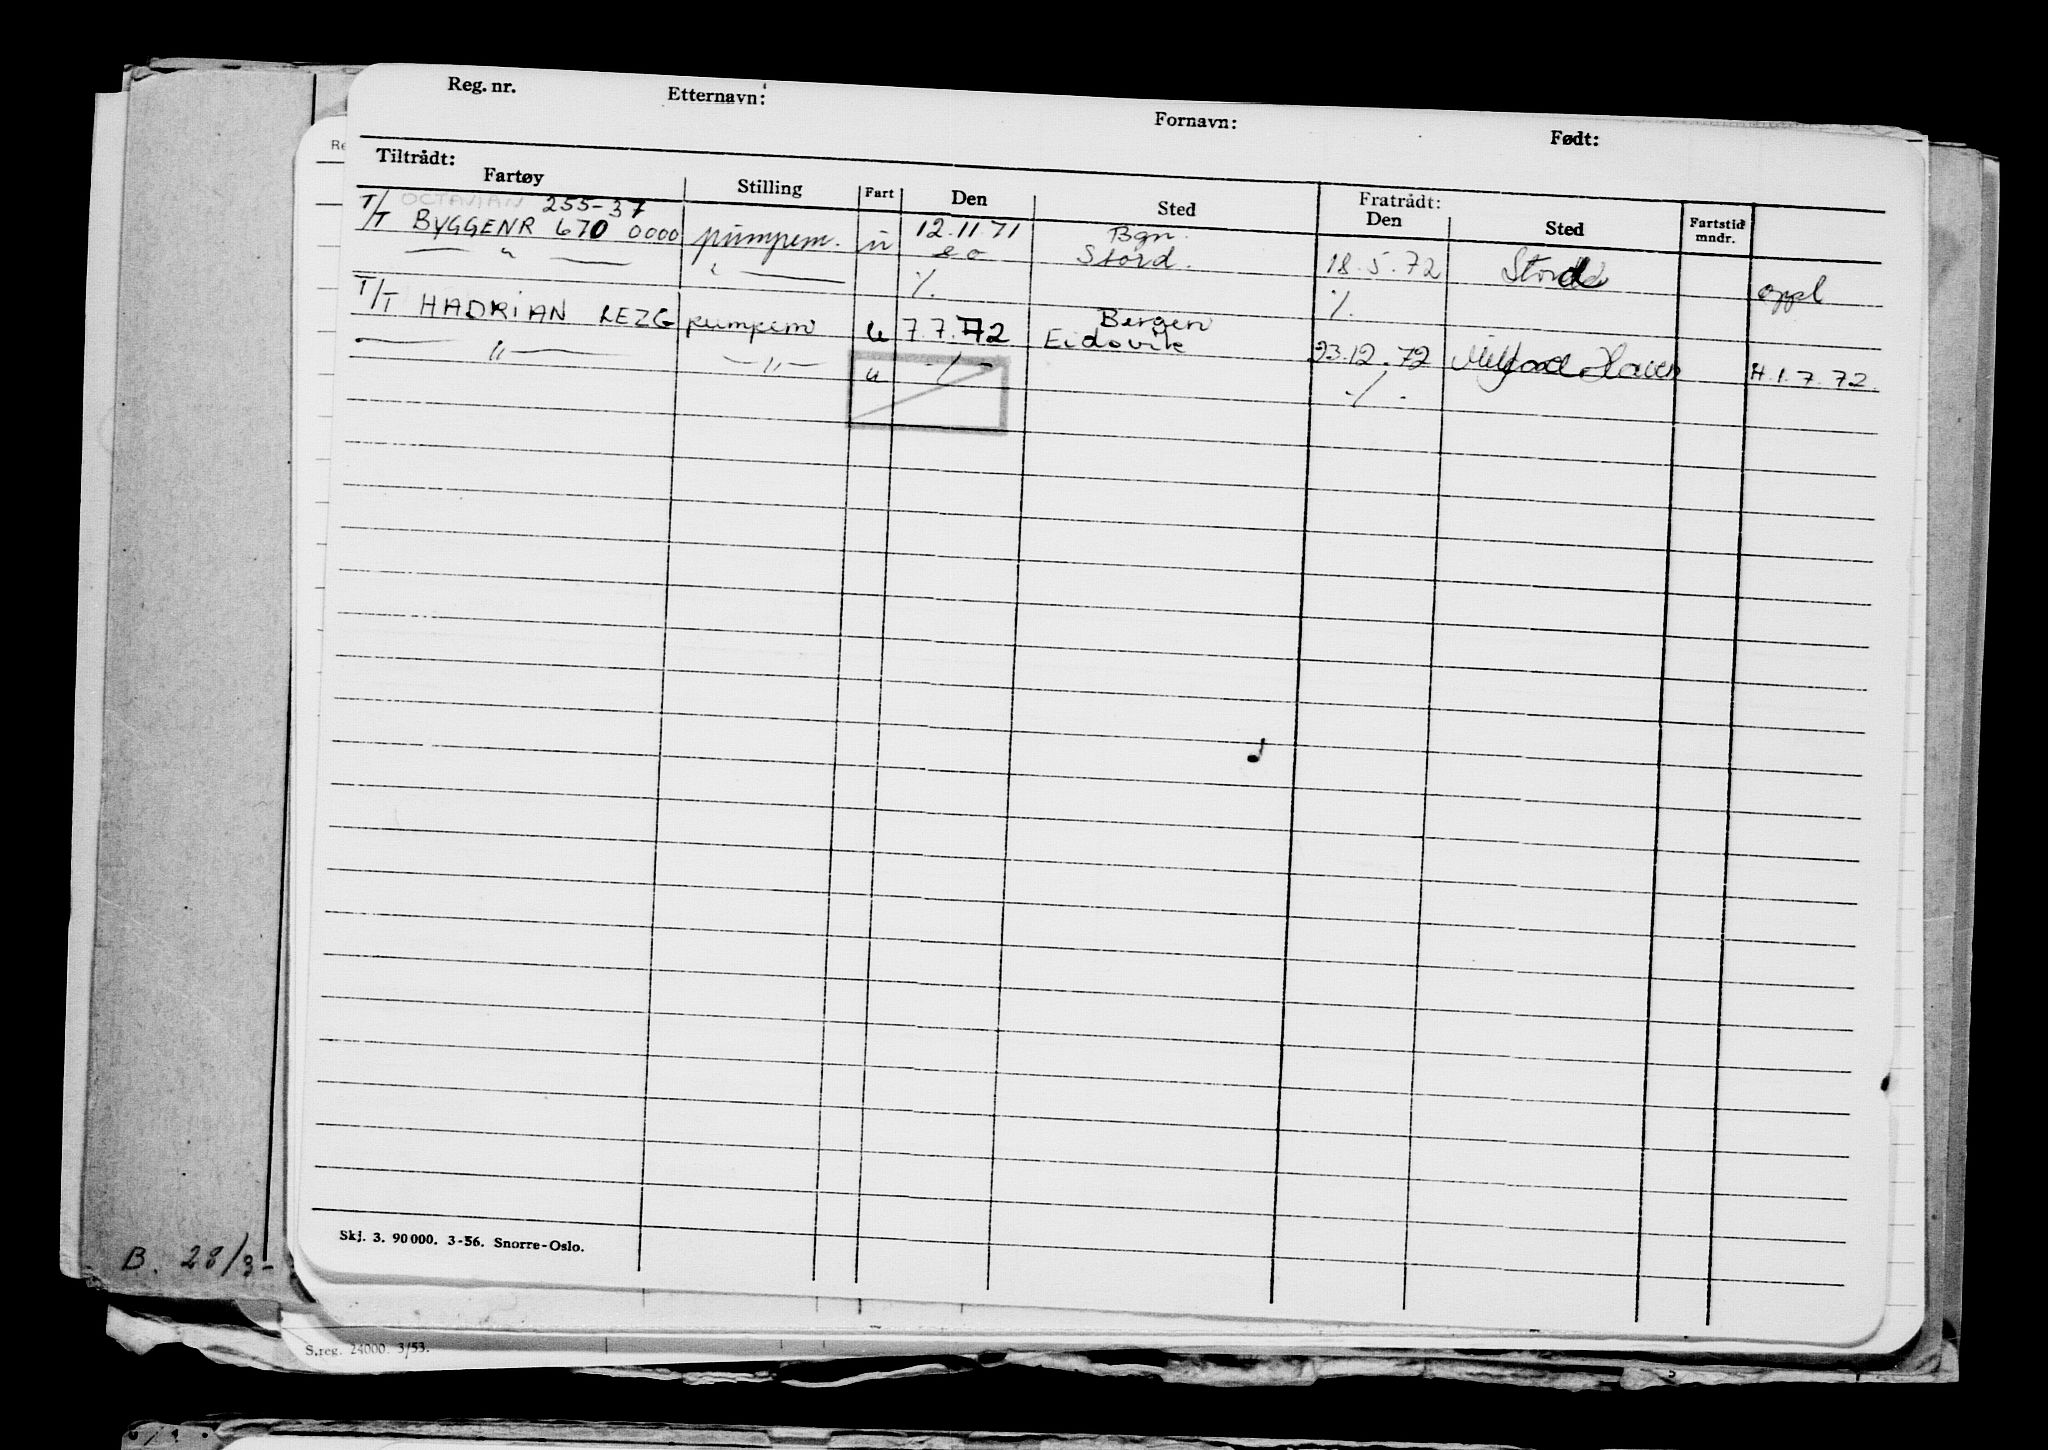 Reg. nr. Etternavn: Fornavn: Født:
Tiltrådt: Fratrådt:
Fartøy Stilling Fart Den Sted Den Sted Fartstid mndr.
OCTAVIAN 255-37
T/T BYGGENR 670 0000 pumpem. u 12.11.71 Bgn.
— " — " — so Stord. 18.5.72 Stord oppl
·/. ·/.
T/T HADRIAN LEZG pumpem u 7.7.72 Bergen
— " — — " — u -/- Eidsvik 23.12.72 Milford Haven H.1.7.72.
·/.
Skj. 3. 90000. 3-56. Snorre-Oslo.
B. 28/3-
S.reg. 24000. 3/53.